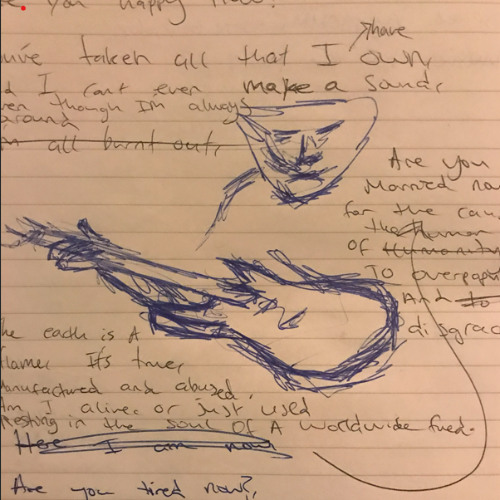 you happy now?
have
taken all that I own,
I cant even make a Sound,
even though Im always
around
all burnt out,
Are you
Married
for the
the Human
of Humanity
To overpop
And to
disgrac
The earth is A
Its true,
Manufactured and abused,
Am I alive or just used
Resting in the soul of A worldwide
Here I am now
Are you tired now?,